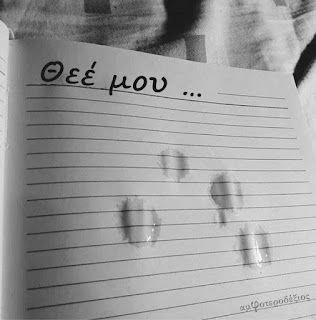 Θεέ μου ...
αμφοτεροδέξιος